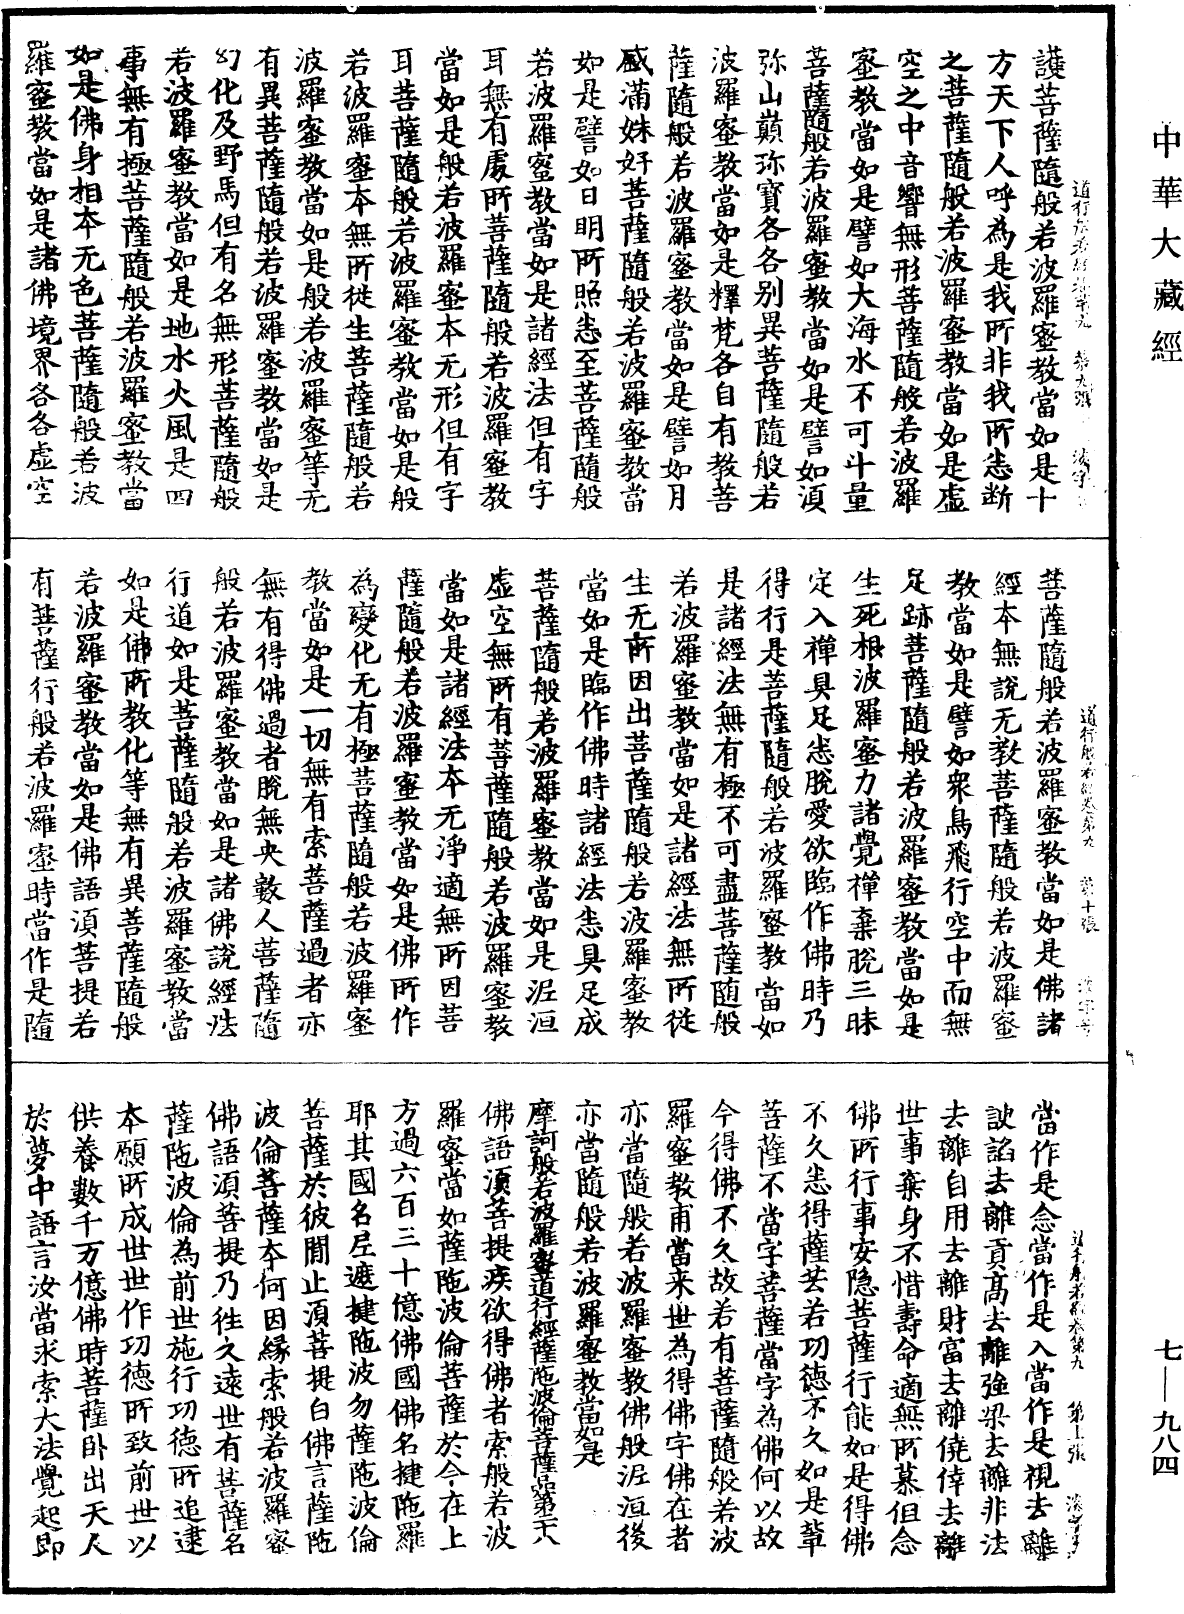 中華大藏經
護菩薩隨般若波羅蜜教當如是十
方天下人呼為是我所非我所悉斷
之菩薩隨般若波羅蜜教當如是虛
空之中音響無形菩薩隨般若波羅
蜜教當如是譬如大海水不可斗量
菩薩隨般若波羅蜜教當如是譬如湏
弥山巔弥寶各各別異菩薩隨般若
波羅蜜教當如是釋梵各自有教菩
薩隨般若波羅蜜教當如是譬如月
盛滿姝好菩薩隨般若波羅蜜教當
如是譬如日明所照悉至菩薩隨般
若波羅蜜教當如是諸經法但有字
耳無有處所菩薩隨般若波羅蜜教
當如是般若波羅蜜本无形但有字
耳菩薩隨般若波羅蜜教當如是般
若波羅蜜本無所從生菩薩隨般若
波羅蜜教當如是般若波羅蜜等无
有異菩薩隨般若波羅蜜教當如是
幻化及野馬但有名無形菩薩隨般
若波羅蜜教當如是地水火風是四
事無有極菩薩隨般若波羅蜜教當
如是佛身相本无色菩薩隨般若波
羅蜜教當如是諸佛境界各各虛空
道行般若經卷第九 第十張
菩薩隨般若波羅蜜教當如是佛諸
經本無說无教菩薩隨般若波羅蜜
教當如是譬如衆鳥飛行空中而無
足跡菩薩隨般若波羅蜜教當如是
生死根波羅蜜力諸覺禪棄脫三昧
定入禪具足悉脫愛欲臨作佛時乃
得行是菩薩隨般若波羅蜜教當如
是諸經法無有極不可盡菩薩隨般
若波羅蜜教當如是諸經法無所從
生无所因出菩薩隨般若波羅蜜教
當如是臨作佛時諸經法悉具足成
菩薩隨般若波羅蜜教當如是泥洹
虛空無所有菩薩隨般若波羅蜜教
當如是諸經法本无淨適無所因菩
薩隨般若波羅蜜教當如是佛所作
為變化无有極菩薩隨般若波羅蜜
教當如是一切無有索菩薩過者亦
無有得佛過者脫無央數人菩薩隨
般若波羅蜜教當如是諸佛說經法
行道如是菩薩隨般若波羅蜜教當
如是佛所教化等無有異菩薩隨般
若波羅蜜教當如是佛語湏菩提若
有菩薩行般若波羅蜜時當作是隨
當作是念當作是入當作是視去離
諛諂去離貢高去離強梁去離非法
去離自用去離財富去離僥倖去離
世事棄身不惜壽命適無所慕但念
佛所行事安隱菩薩行能如是得佛
不久悉得薩芸若功德不久如是輩
菩薩不當字菩薩當字為佛何以故
今得佛不久故若有菩薩隨般若波
羅蜜教甫當來世為得佛字佛在者
亦當隨般若波羅蜜教佛般泥洹後
亦當隨般若波羅蜜教當如是
摩訶般若波羅蜜道行經薩陁波倫菩薩品第二十八
佛語湏菩提疾欲得佛者索般若波
羅蜜當如薩陁波倫菩薩於今在上
方過六百三十億佛國佛名揵陁羅
耶其國名尼遮揵陁波勿薩陁波倫
菩薩於彼間止湏菩提白佛言薩陁
波倫菩薩本何因緣索般若波羅蜜
佛語湏菩提乃往久遠世有菩薩名
薩陁波倫為前世施行功德所追逮
本願所成世世作功德所致前世以
供養數千万億佛時菩薩卧出天人
於夢中語言汝當求索大法覺起即
七—九八四